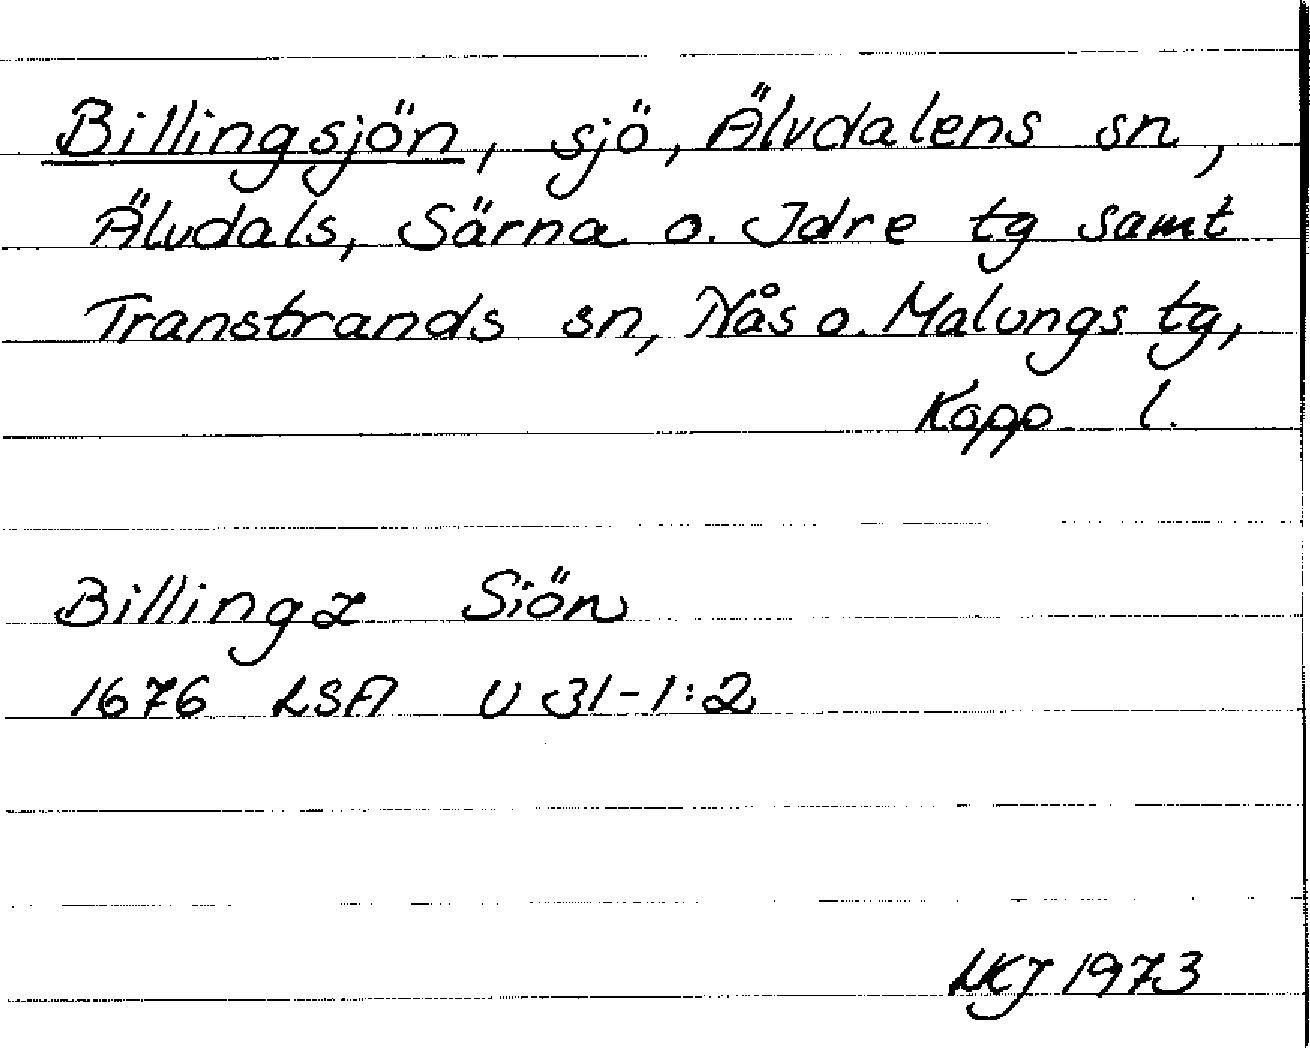 Billingsjön, sjö, Älvdalens sn,
Älvdals, Särna o. Idre tg samt
Transtrands sn, Nås o. Malungs tg,
Kopp l.
Billingz Siön
1676 LSA U 31-1:2
MKJ 1973